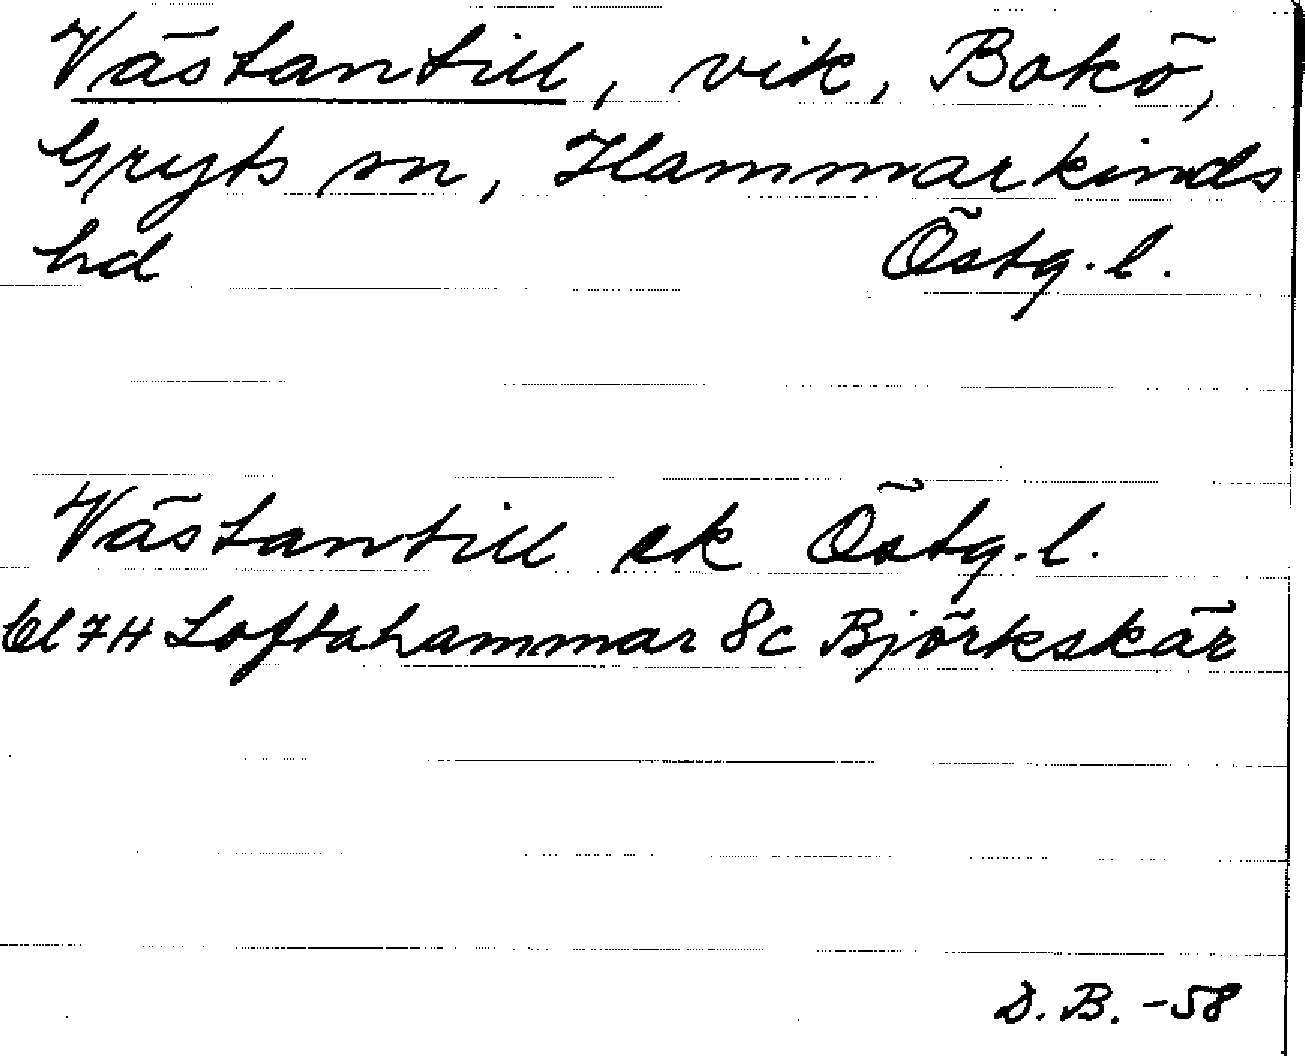 Västantill, vik, Bokö,
Gryts sn, Hammarkinds
hd Östg. l.
Västantill ek Östg. l.
bl 7H Loftahammar 8c Björkskär
D. B. -58